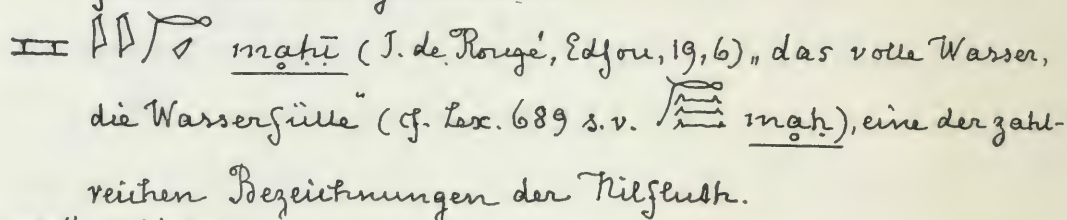 mạḥī (J. de Rougé, Edfou, 19, 6) „das volle Wasser,
die Wasserfülle“ (cf. Lex. 689 s. v. mạḥ), eine der zahl-
reichen Bezeichnungen der Nilfluth.